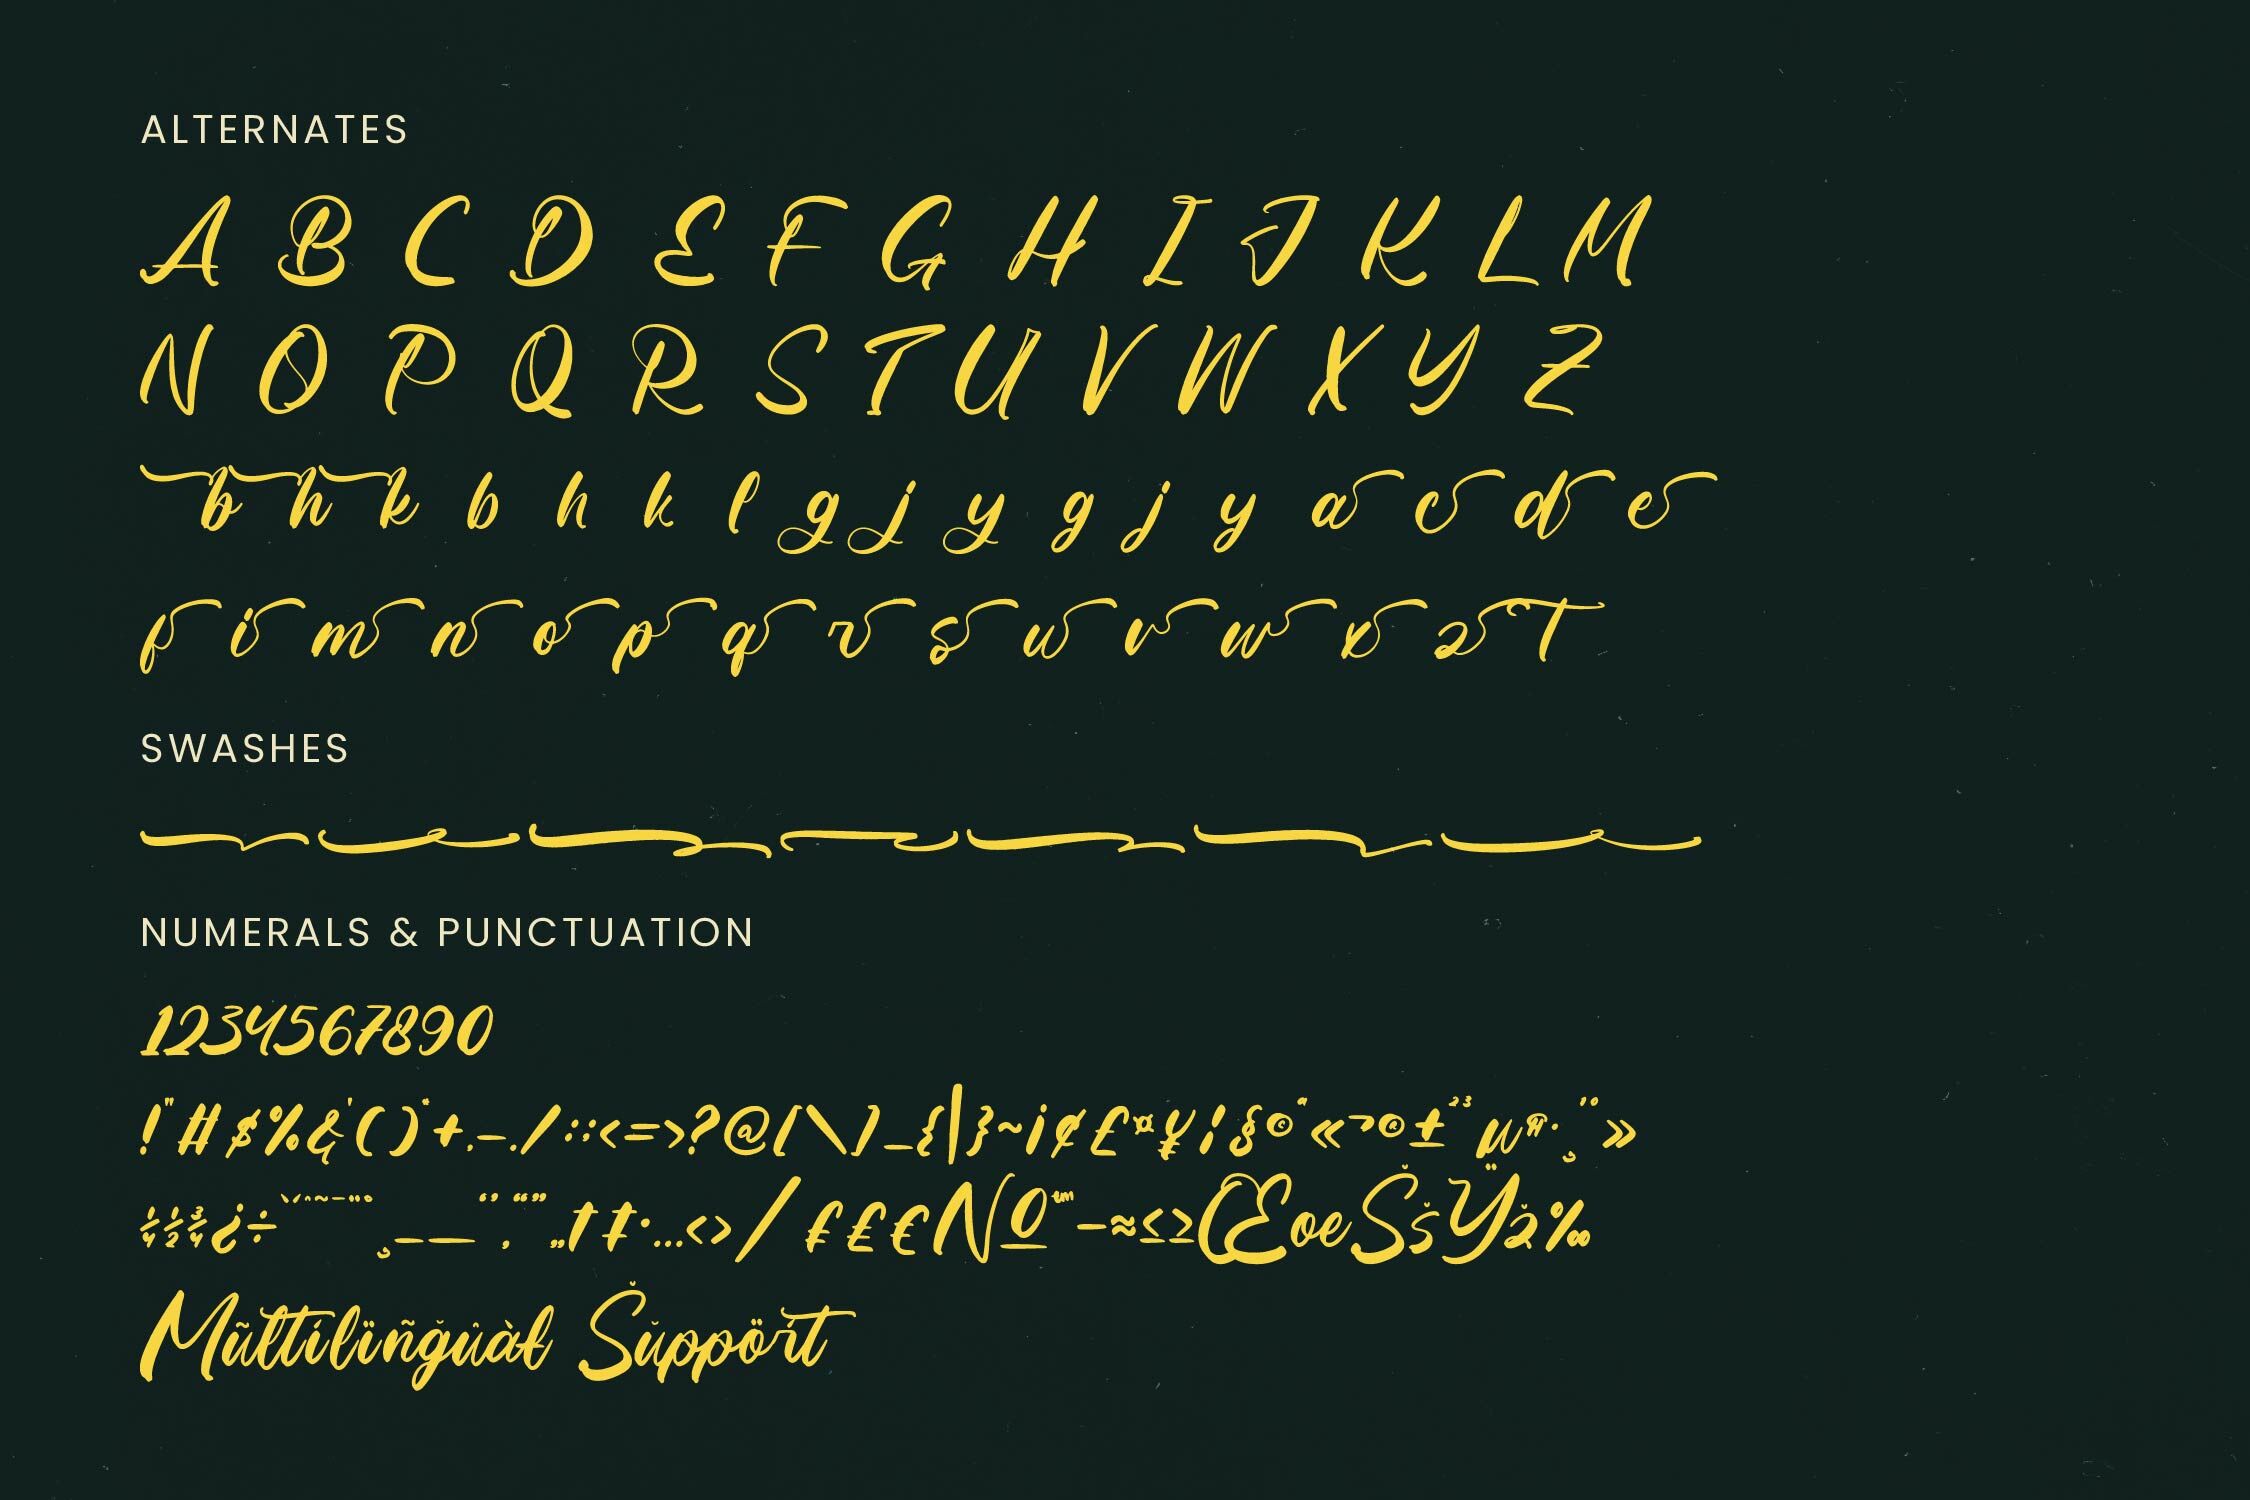 ALTERNATES
A B C D E F G H I J K L M
N O P Q R S T U V W X Y Z
b h k b h k l g j y g j y a c d e
f i m n o p q r s u v w x z T
SWASHES
NUMERALS & PUNCTUATION
1234567890
!"#$%&'()*+,-./:;<=>?@[\]_{|}~¡¢£¤¥¦§©ª«¬®±²³µ¶·¸¹º»
¼½¾¿÷ˋˊˆ˜¯¨˚¸–—‘’‚“”„†‡•…‹›⁄₣₤€№™−≈≤≥ŒœŠšŸž‰
Mũltílïñğuàł Šŭppört